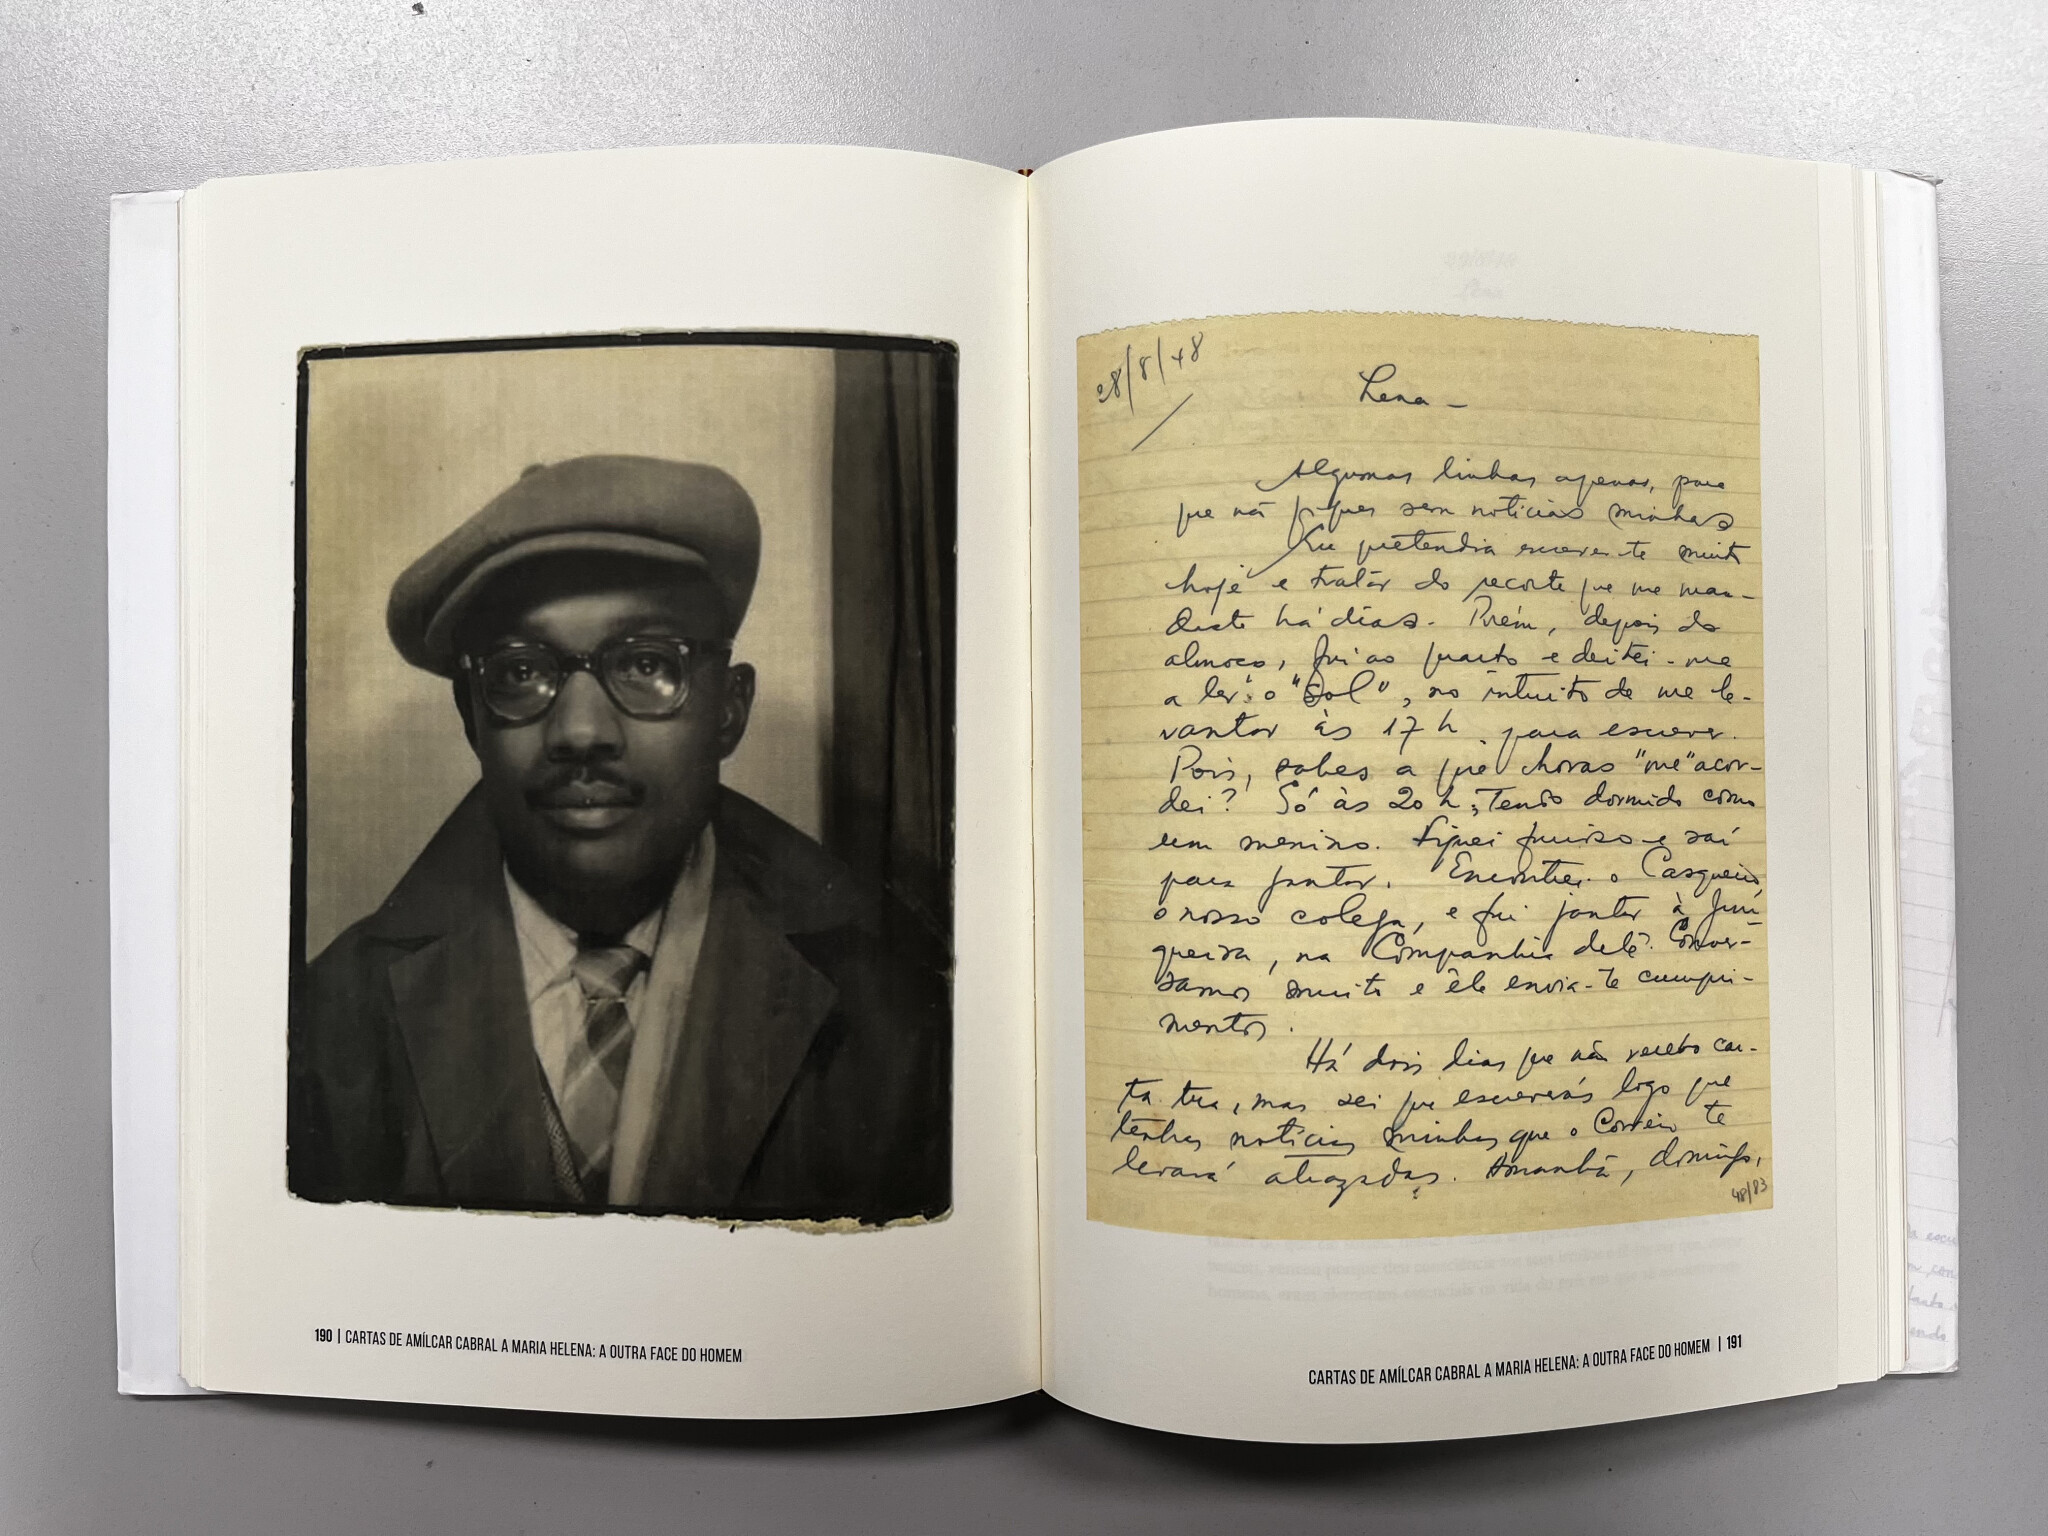 190 | CARTAS DE AMÍLCAR CABRAL A MARIA HELENA: A OUTRA FACE DO HOMEM
28/8/48
Lena –
Algumas linhas apenas, para
que não fiques sem notícias minhas
Eu pretendia escrever-te muito
hoje e tratar do recorte que me man-
daste há dias. Porém, depois do
almoço, fui ao quarto e deitei-me
a ler o "Sol", no intuito de me le-
vantar às 17 h para escrever.
Pois, sabes a que horas "me" acor-
dei? Só às 20 h, Tendo dormido como
um menino. Fiquei furioso e saí
para jantar. Encontrei o Casqueiro,
o nosso colega, e fui jantar à Jun-
queira, na Companhia dele. Conver-
samos muito e êle envia-te cumpri-
mentos.
Há dois dias que não recebo car-
ta tua, mas sei que escreverás logo que
tenhas notícias minhas que o Correio te
levará atrazadas. Amanhã, domingo,
48/83
CARTAS DE AMÍLCAR CABRAL A MARIA HELENA: A OUTRA FACE DO HOMEM | 191